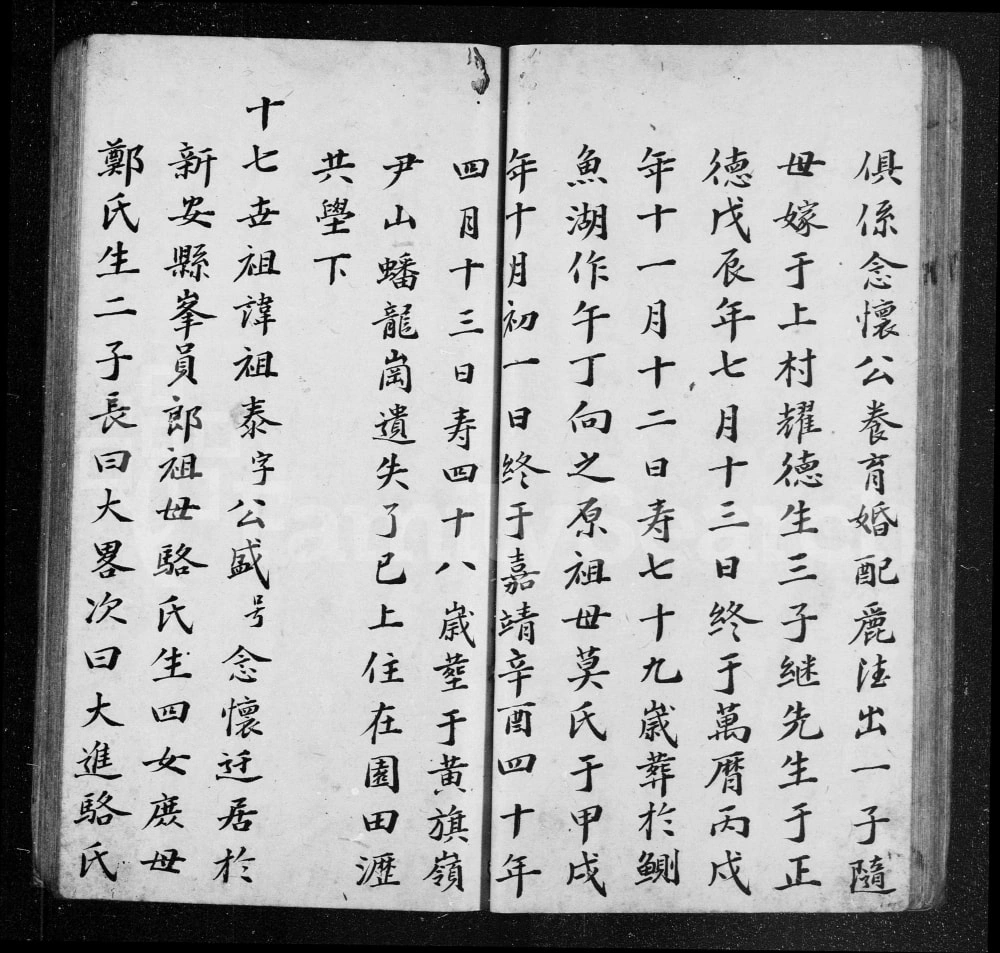 俱係念懷公養育婚配麂法出一子隨
母嫁于上村耀德生三子継先生于正
德戊辰年七月十三日終于萬曆丙戌
年十一月十二日寿七十九歲葬於鰂
魚湖作午丁向之原祖母莫氏于甲戌
年十月初一日終于嘉靖辛酉四十年
四月十三日寿四十八歲塟于黃旗嶺
尹山蟠龍崗遺失了已上住在園田瀝
共壆下
十七世祖諱祖泰字公盛号念懷迁居於
新安縣峯員郎祖母駱氏生四女庶母
鄭氏生二子長曰大畧次曰大進駱氏
FamilySearch